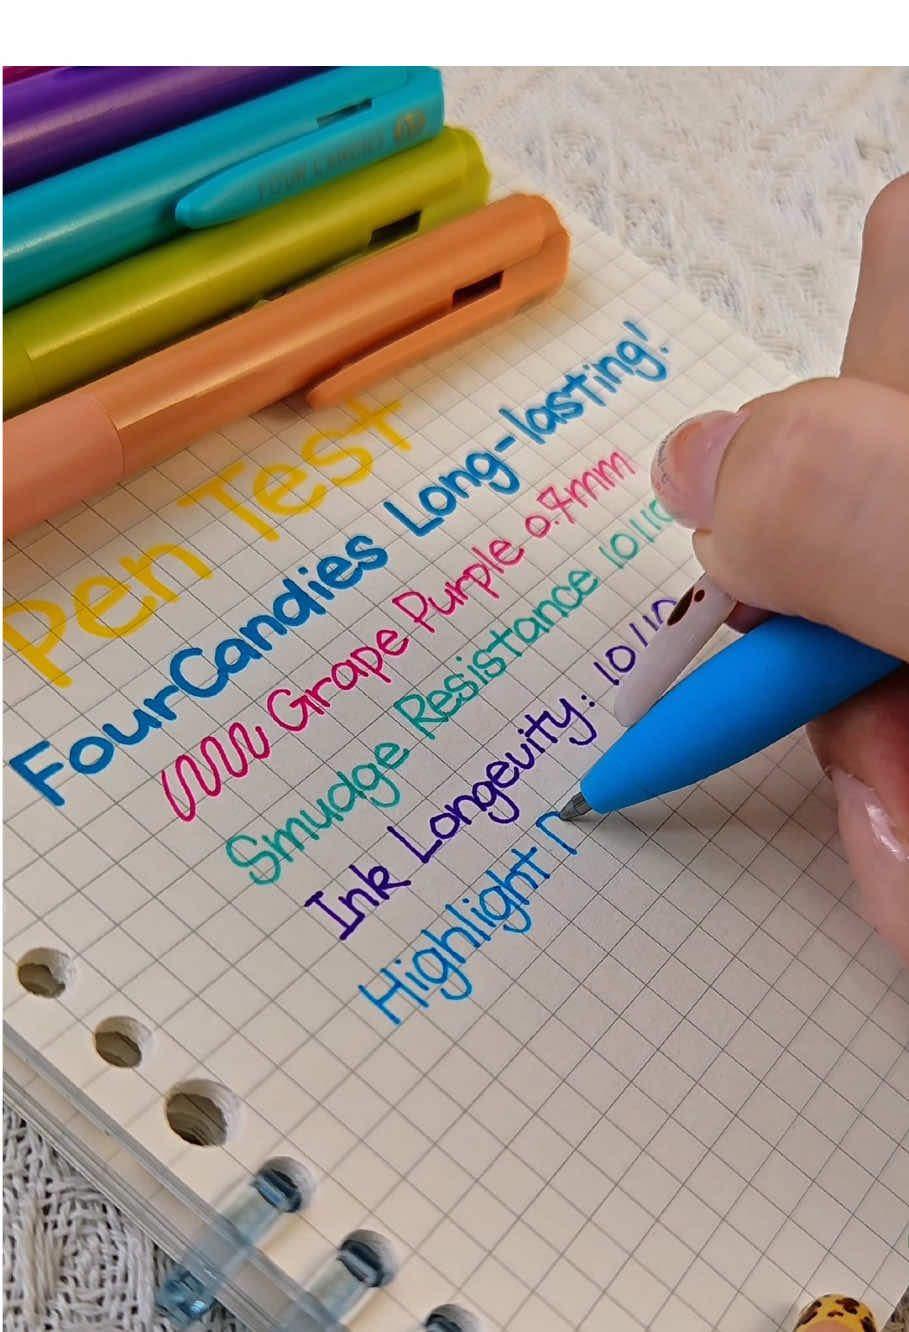 FOUR CANDIES
Pen Test
FourCandies Long-lasting!
Grape Purple 0.7mm
Smudge Resistance 10/10
Ink Longevity: 10/10
Highlight